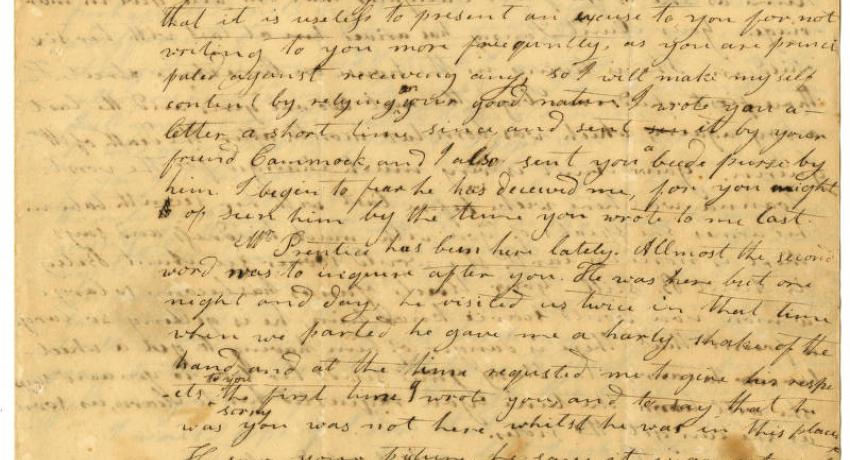 that it is useless to present an excuse to you for not
writing to you more freequntly, as you are princi
paled against receiving any, so I will make myself
content by relying on your good nature I wrote you a
letter a short time since and sent sen it by your
friend Cammock, and I also sent you a beede purse by
him. I begin to fear he has deceived me, for you might
of seen him by the time you wrote to me last
Mr Prentice has been here lately. Allmost the second
word was to inquire after you. He was here but one
night and day, he visited us twice in that time
when we parted he gave me a harty shake of the
hand, and at the time requested me to give his respe
-cts to you the first time I wrote you, and to say that he
was sorry you was not here whilst he was in this place
your picture he